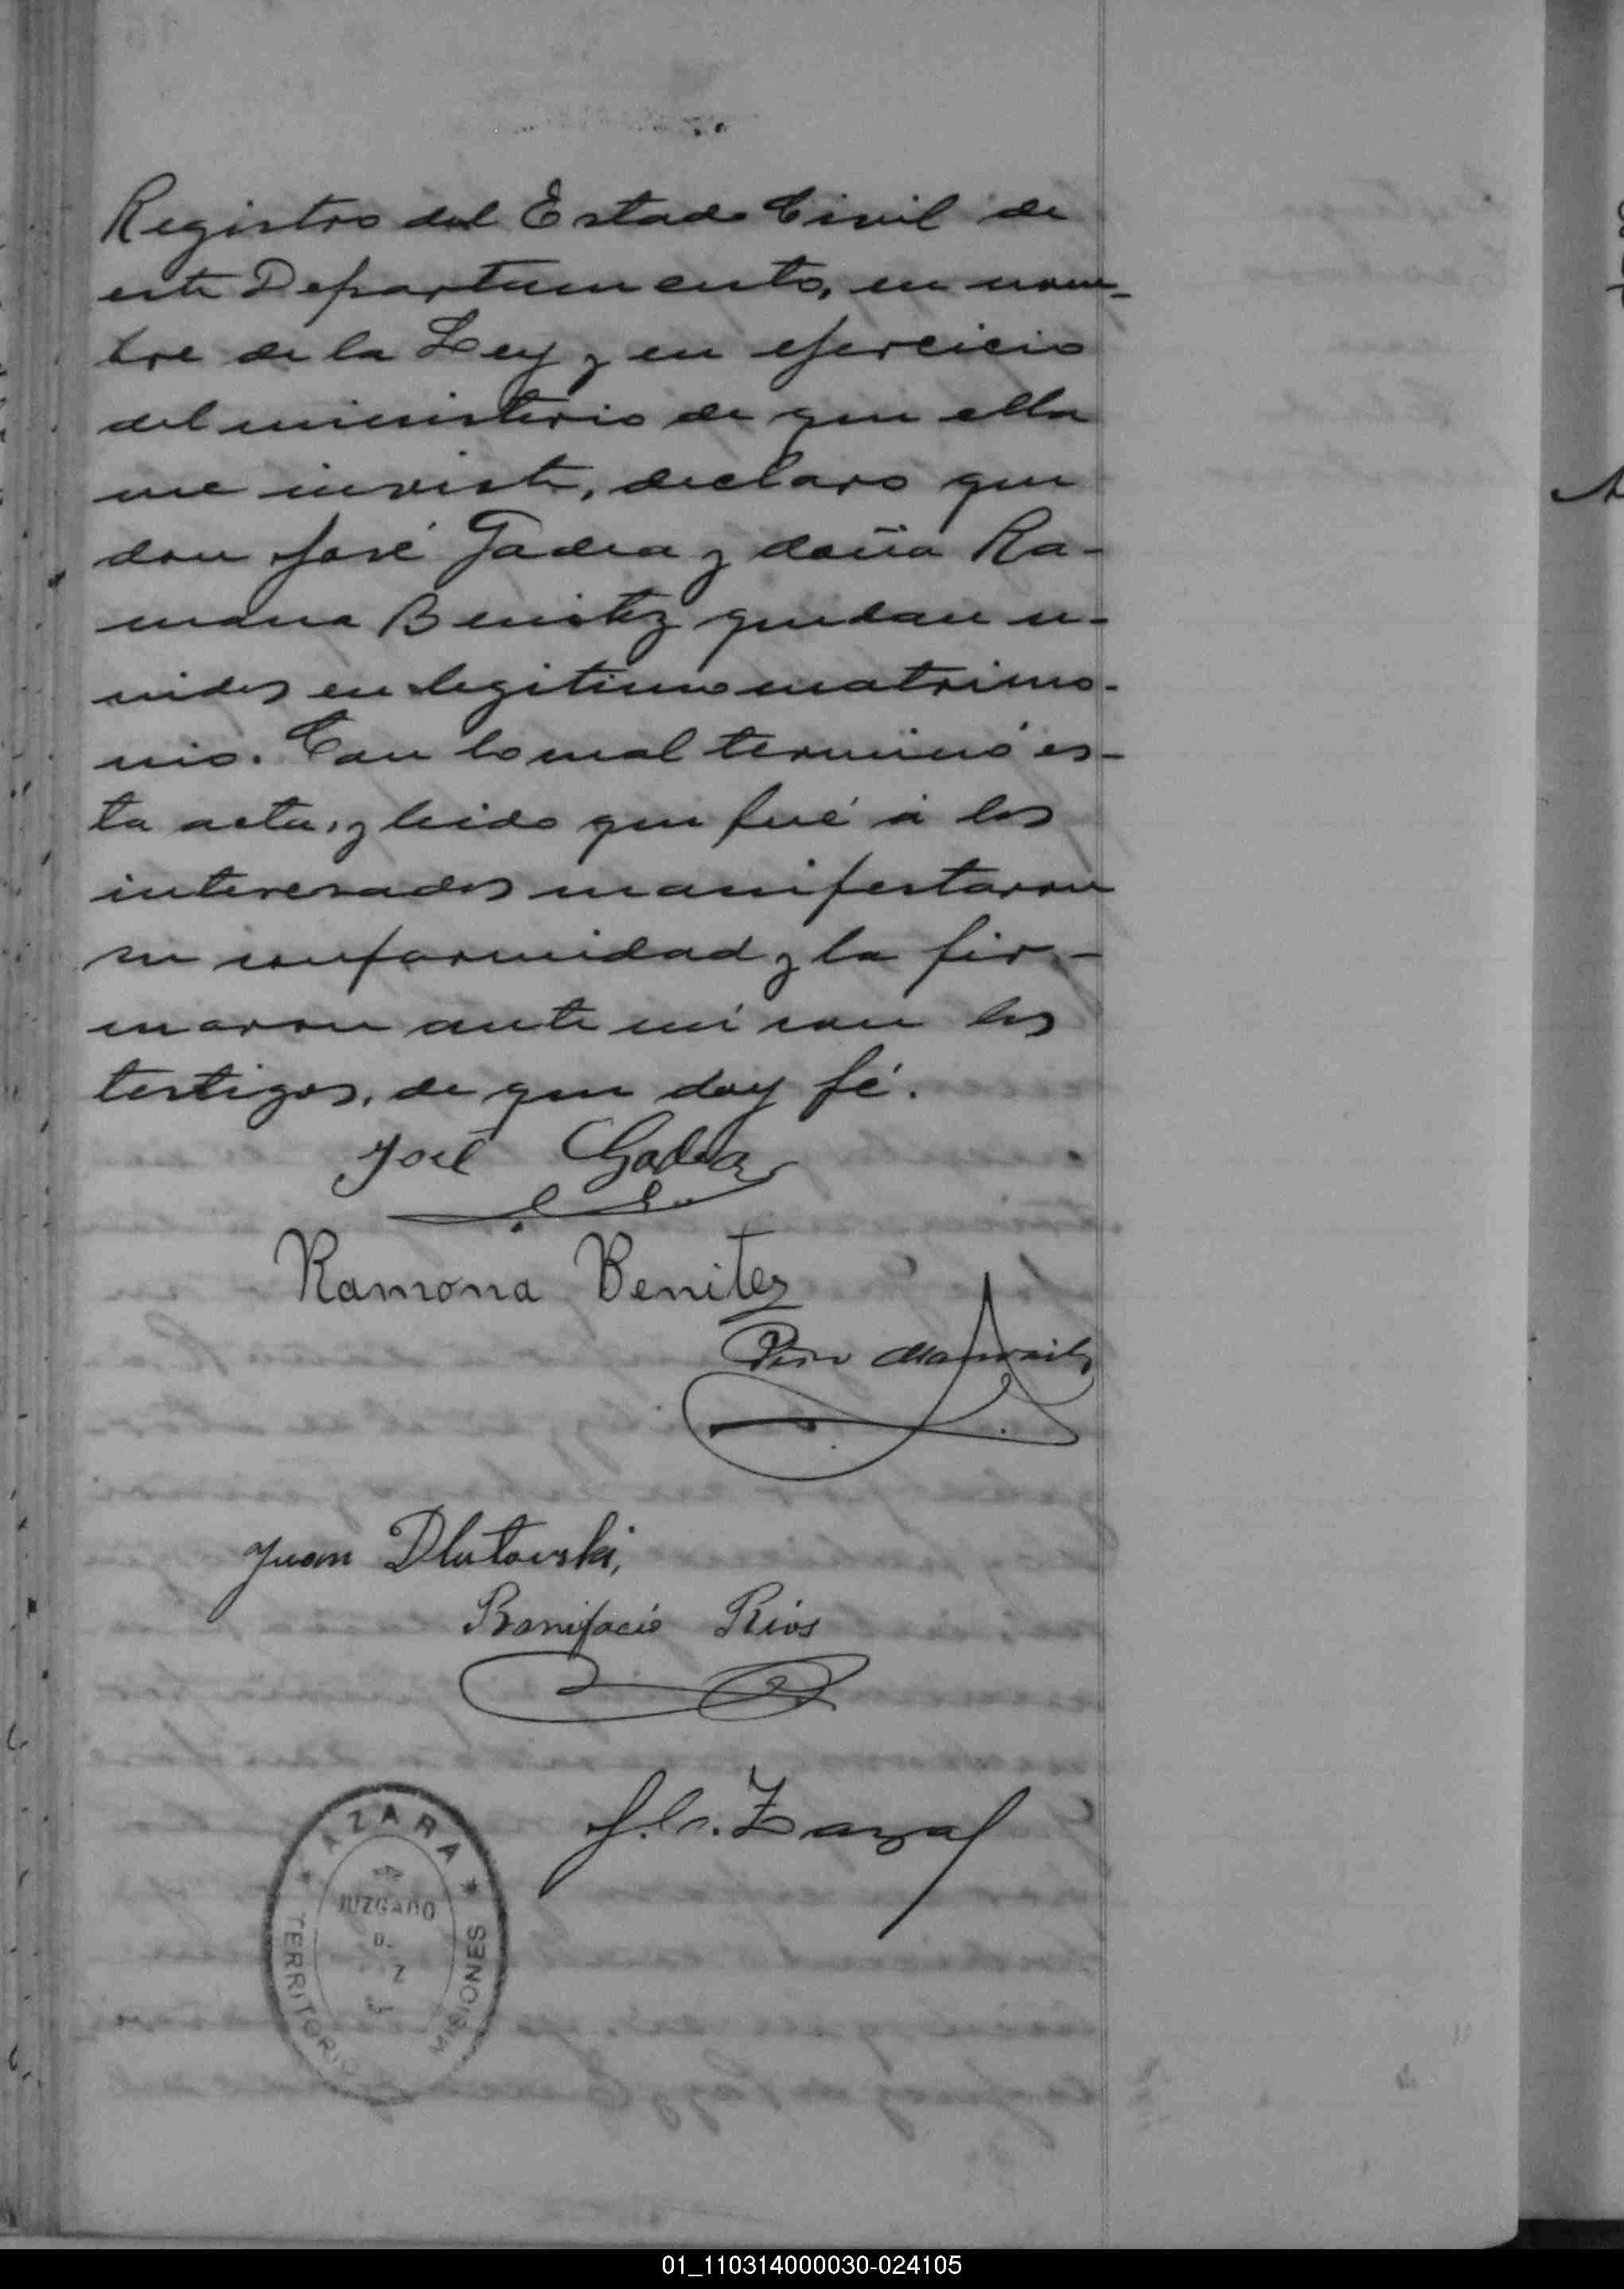 Registro del Estado Civil de
este Departamento, en nom-
bre de la Ley y en ejercicio
del ministerio de que ella
me inviste, declaro que
don José Gadea y doña Ra-
mona Benitez quedan u-
nidos en legitimo matrimo-
nio. Con lo cual terminó es-
ta acta, y leida que fué á los
interesados manifestaron
su conformidad y la fir-
maron ante mi con los
testigos, de que doy fé.
José Gadea
Ramona Benitez
Juan Dlutowski,
Bonifacio Rios
AZARA
JUZGADO
TERRITORIO
MISIONES
01_110314000030-024105